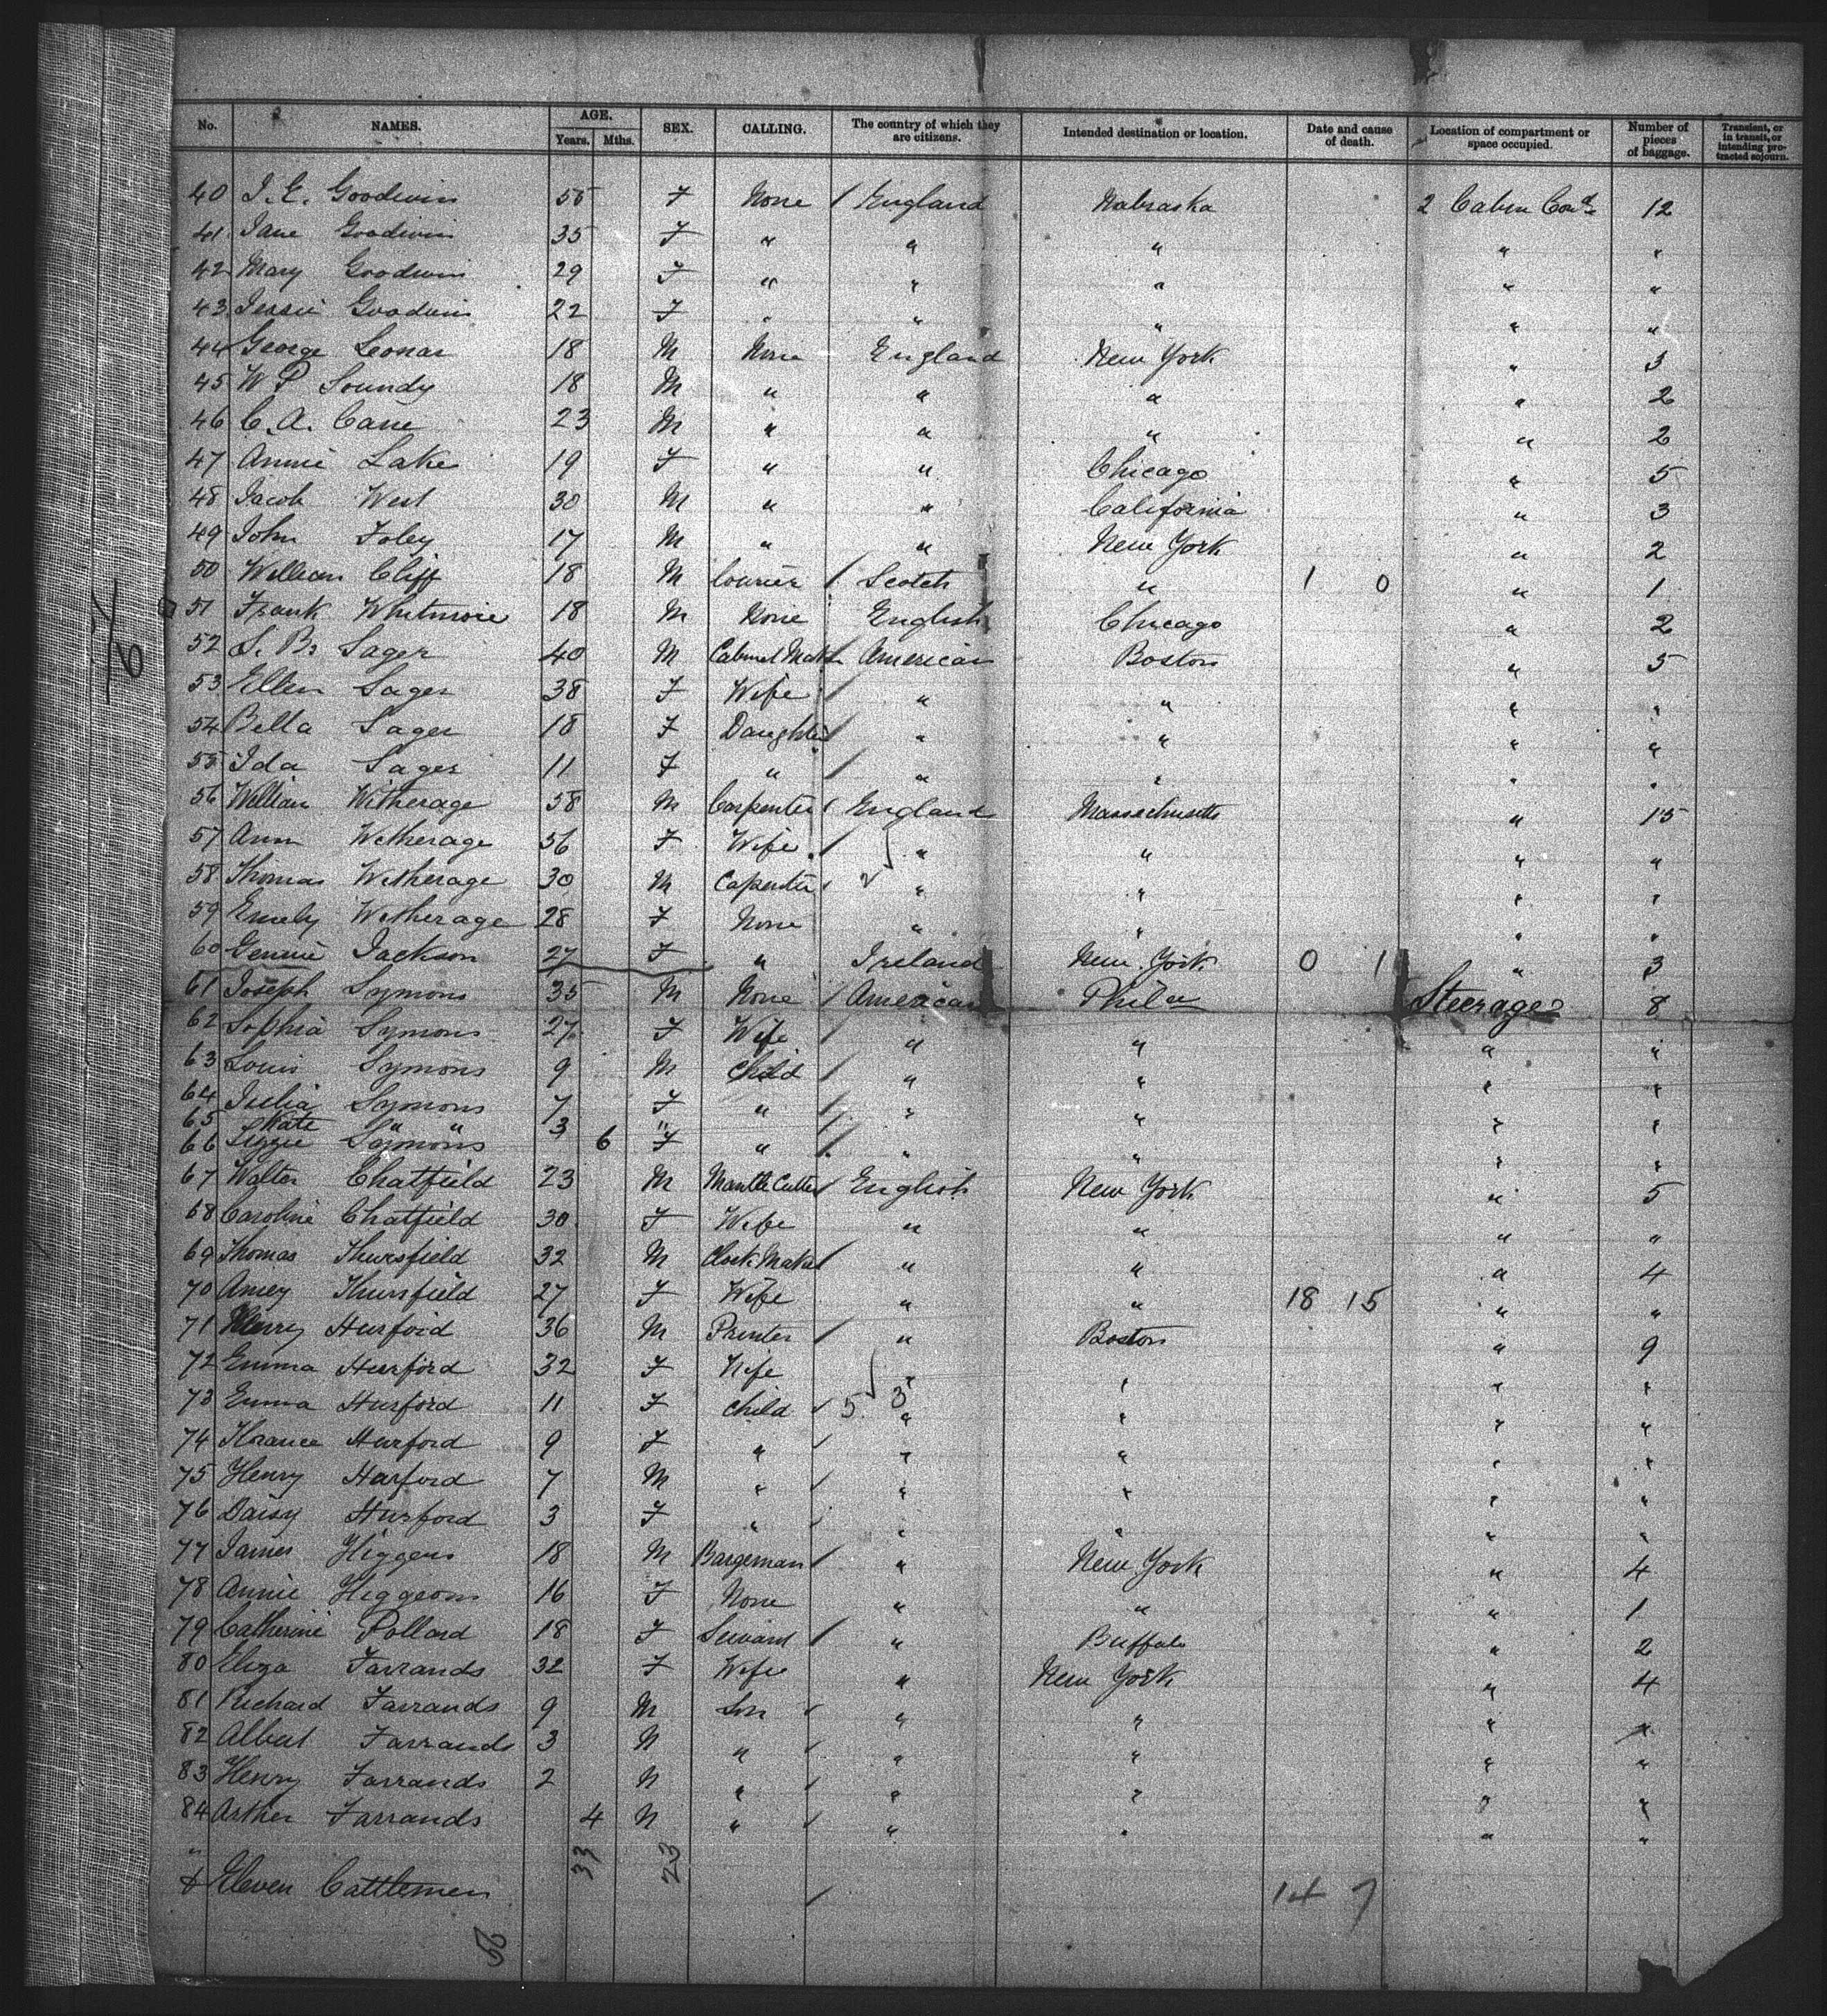 No. NAMES. AGE. Years. Mths. SEX. CALLING. The country of which they are citizens. Intended destination or location. Date and cause of death. Location of compartment or space occupied. Number of pieces of baggage. Transient, or in transit, or intending protracted sojourn.
40 J. E. Goodwin 55 F None / England Nabraska 2 Cabin Cond 12
41 Jane Goodwin 35 F " " " " "
42 Mary Goodwin 29 F " " " " "
43 Jessie Goodwin 22 F " " " " "
44 George Leonar 18 M None England New York " 3
45 W P Soundy 18 M " " " " 2
46 C. A. Cane 23 M " " " " 2
47 Annie Lake 19 F " " Chicago " 5
48 Jacob West 30 M " " California " 3
49 John Foley 17 M " " New York " 2
50 William Cliff 18 M Courier / Scotch " 1 0 " 1
51 Frank Whitmore 18 M None English Chicago " 2
52 S. B. Sager 40 M Cabinet Mak American Boston " 5
53 Ellen Sager 38 F Wife / " " " "
54 Bella Sager 18 F Daughter / " " " "
55 Ida Sager 11 F " / " " " "
56 William Witherage 58 M Carpenter / England Massachusetts " 15
57 Ann Witherage 56 F Wife / " " " "
58 Thomas Witherage 30 M Capenter 2 " " " "
59 Emely Witherage 28 F None " " " "
60 Gennie Jackson 27 F " Ireland New York 0 1 " 3
61 Joseph Symons 35 M None / American Phila Steerage 8
62 Sophia Symons 27 F Wife / " " " "
63 Louis Symons 9 M Child / " " " "
64 Julia Symons 7 F " / " " " "
65 Kate " " 3 "
66 Lizzie Symons 6 F " / " " " "
67 Walter Chatfield 23 M Mantle Cutter / English New York " 5
68 Caroline Chatfield 30 F Wife " " " "
69 Thomas Thursfield 32 M Clock Maker / " " " 4
70 Amey Thursfield 27 F Wife " " 18 15 " "
71 Henry Hurford 36 M Printer / " Boston " 9
72 Emma Hurford 32 F Wife " " " "
73 Emma Hurford 11 F Child / 5 3 " " " "
74 Florance Hurford 9 F " / " " " "
75 Henry Hurford 7 M " / " " " "
76 Daisy Hurford 3 F " / " " " "
77 James Higgens 18 M Bargeman / " New York " 4
78 Annie Higgeons 16 F None " " " 1
79 Catherine Pollard 18 F Servant / " Buffalo " 2
80 Eliza Farrands 32 F Wife " New York " 4
81 Richard Farrands 9 M Son / " " " "
82 Albert Farrands 3 M " / " " " "
83 Henry Farrands 2 M " / " " " "
84 Arther Farrands 4 M " / " " " "
" 33 23
& Eleven Cattlemen / 14 7